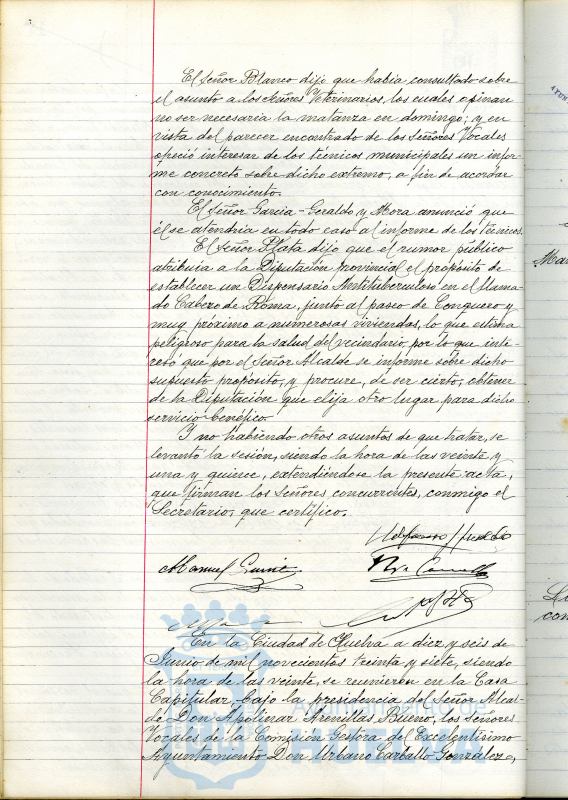 El Señor Blanco dijo que habia consultado sobre
el asunto a los Señores Veterinarios, los cuales opinan
no ser necesaria la matanza en domingo; y en
vista del parecer encontrado de los Señores Vocales
ofreció interesar de los técnicos municipales un infor-
me concreto sobre dicho extremo, a fin de acordar
con conocimiento.
El Señor Garcia-Geraldo y Mora anunció que
él se atendria en todo caso al informe de los técnicos.
El Señor Plata dijo que el rumor público
atribuia a la Diputación provincial el propósito de
establecer un Dispensario Antituberculoso en el llama-
do Cabezo de Roma, junto al paseo de Conquero y
muy próximo a numerosas viviendas, lo que estima
peligroso para la salud del vecindario, por lo que inte-
resó que por el Señor Alcalde se informe sobre dicho
supuesto propósito, y procure, de ser cierto, obtener
de la Diputación que elija otro lugar para dicho
servicio benéfico.
Y no habiendo otros asuntos de que tratar, se
levantó la sesión, siendo la hora de las veinte y
una y quince, extendiéndose la presente acta,
que firman los Señores concurrentes, conmigo el
Secretario, que certifico.
Manuel
En la Ciudad de Huelva a diez y seis de
Junio de mil novecientos treinta y siete, siendo
la hora de las veinte, se reunieron en la Casa
Capitular, bajo la presidencia del Señor Alcal-
de Don Apolinar Arenillas Bueno, los señores
Vocales de la Comisión Gestora del Excelentísimo
Ayuntamiento Don Urbano Carballo González,